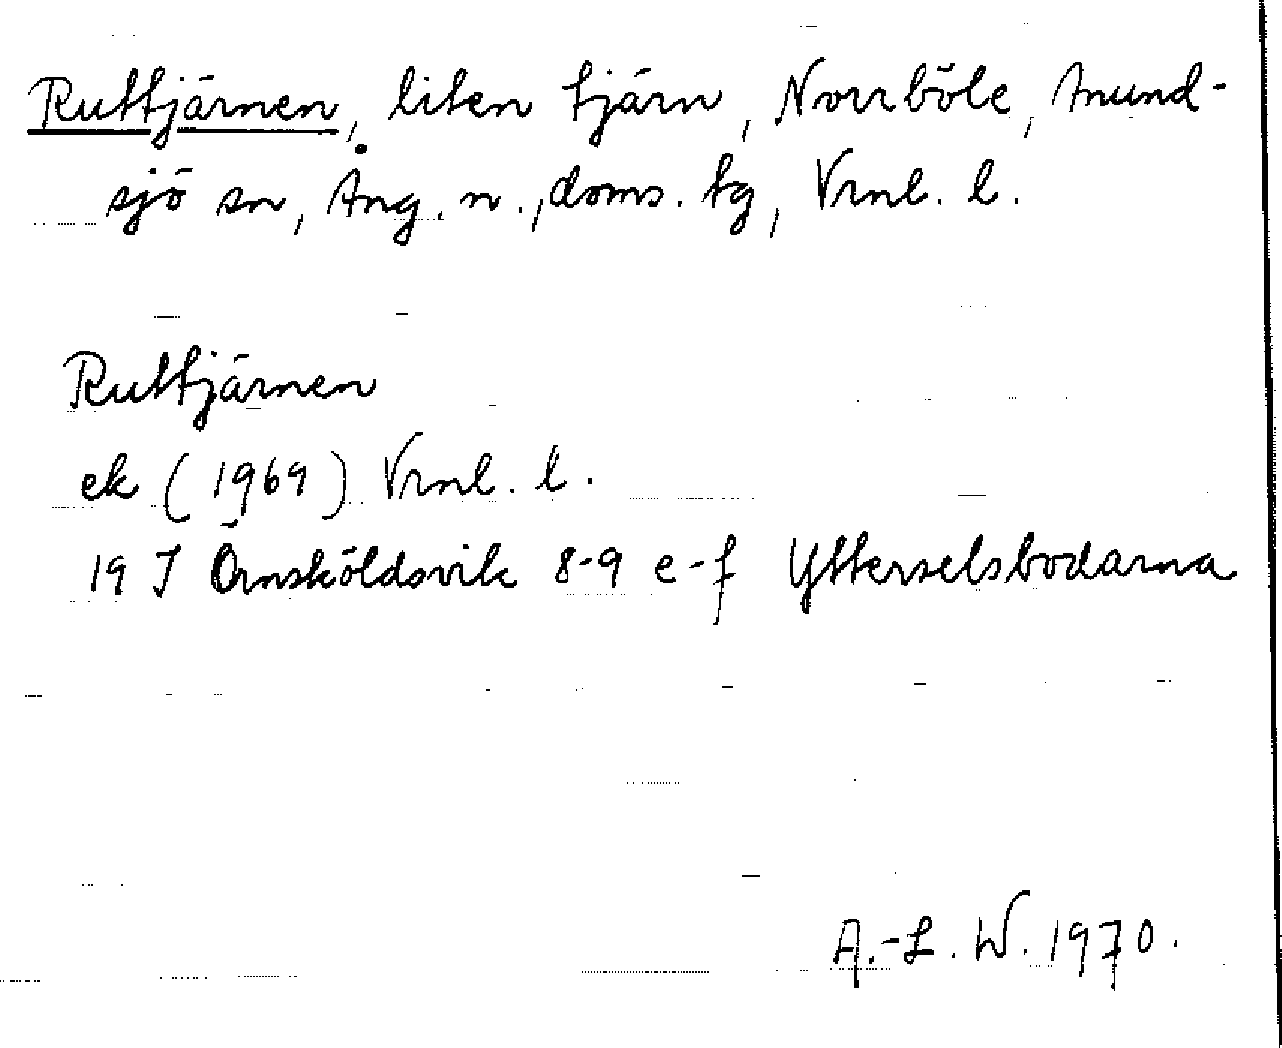 Ruttjärnen, liten tjärn, Norrböle, Anund-
sjö sn, Ång. n., doms. tg, Vrnl. l.
Ruttjärnen
ek (1969) Vrnl. l.
19 J Örnsköldsvik 8-9 e-f Ytterselsbodarna
A.-L. W. 1970.